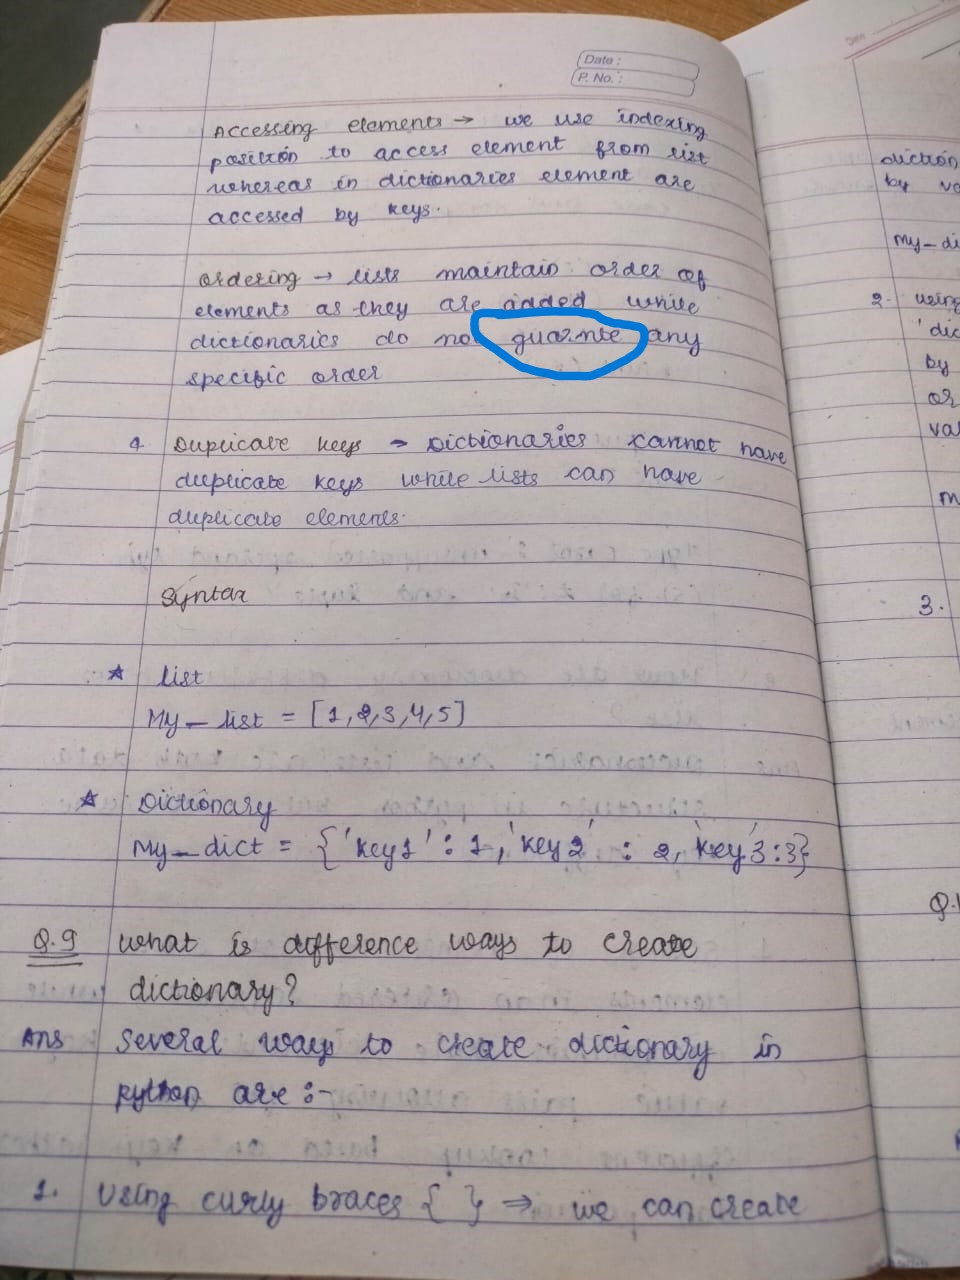 Date :
P. No. :
Accessing elements → we use indexing
position to access element from list
whereas in dictionaries element are
accessed by keys.
ordering → lists maintain order of
elements as they are added while
dictionaries do not guarnte any
specific order
4. Duplicate keys - Dictionaries cannot have
duplicate keys while lists can have
duplicate elements.
Syntax
☆ list
My_list = [1,2,3,4,5]
☆ Dictionary
My_dict = {'key1' : 1, 'key2' : 2, 'key'3:3}
Q.9 what is difference ways to create
dictionary?
Ans Several ways to create dictionary in
python are :-
1. Using curly braces { } ⇒ we can create
diction
by va
My_di
2. using
'dic
by
or
val
m
3.
Q.1